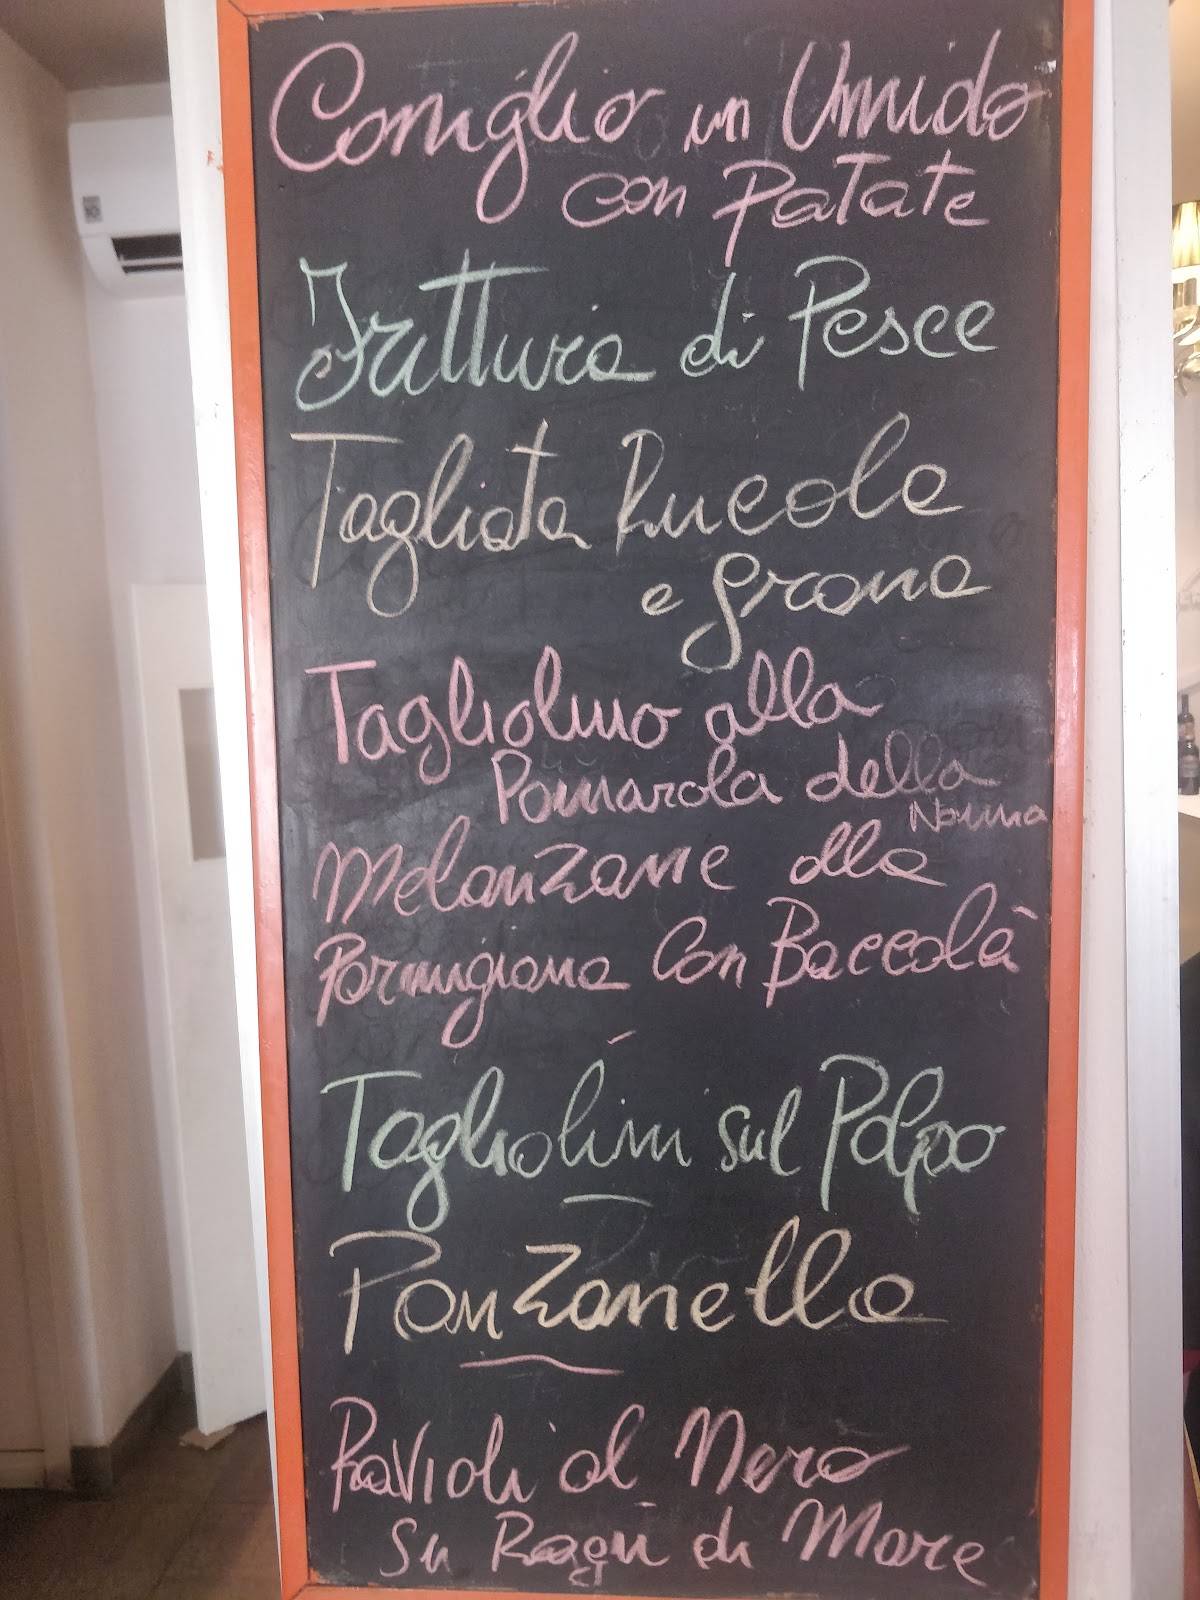 Coniglio in Umido
con Patate
Frittura di Pesce
Tagliata Rucola
e grana
Tagliolino alla
Pomarola della
Nonna
Melanzane alla
Parmigiana Con Baccalà
Tagliolini sul Polpo
Panzanella
Ravioli al Nero
Su Ragù di Mare